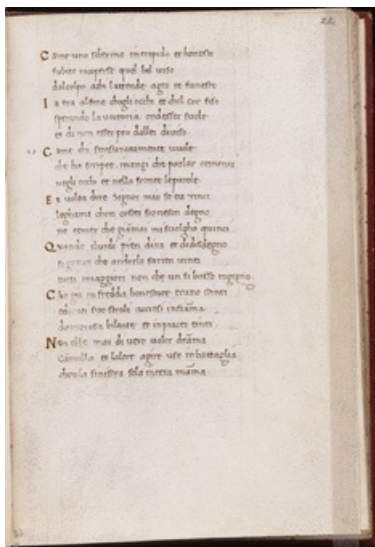 22
Come uno schermo intrepido et honesto
subito ricoperse quel bel viso
dal colpo achi lattende agro et funesto
I o era alfine chogli occhi et chol cor fiso
sperando la victoria ondesser suole
et di non esser piu dallei diviso
C ome chi smisuratamente vuole
che ha scripte inanzi che parlar cominci
negli occhi et nella fronte leparole
volea dire Signor mio se tu vinci
leghami chon costei sioneson degno
ne temer che giamai mi sciolgha quinci
Q uando iluidi pien dira et didisdegno
si grave che aridirlo sarien vinti
tutti imaggiori non che un si basso ingegno
C he gia in fredda honestate erano
suoi strali accesi infiāma
damorosa biltate et inpiacer tinti
N on ebbe mai di vero valor drāma
Camilla et laltre use inbattaglia
chonla sinistra sola intera māma